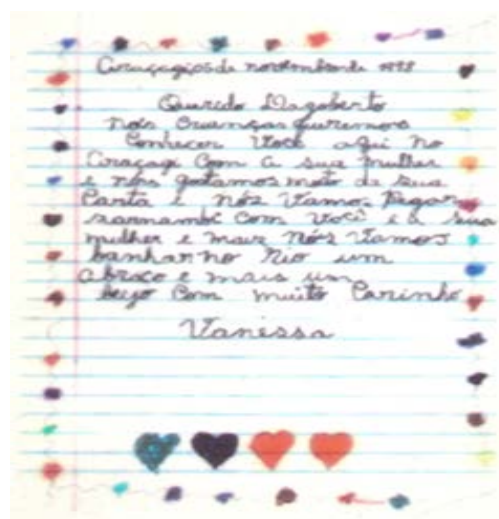 Querido Dagoberto
nóis Crianças queremos
Conhecer Você aqui no
Coraçagi Com a sua mulher
e nós gostamos moto de sua
Carta e nóz Vamos Pegar
com Você e a sua
mulher e mais nós Vamos
banhar no Rio um
abraço e mais um
beijo Com muito Carinho
Vanessa